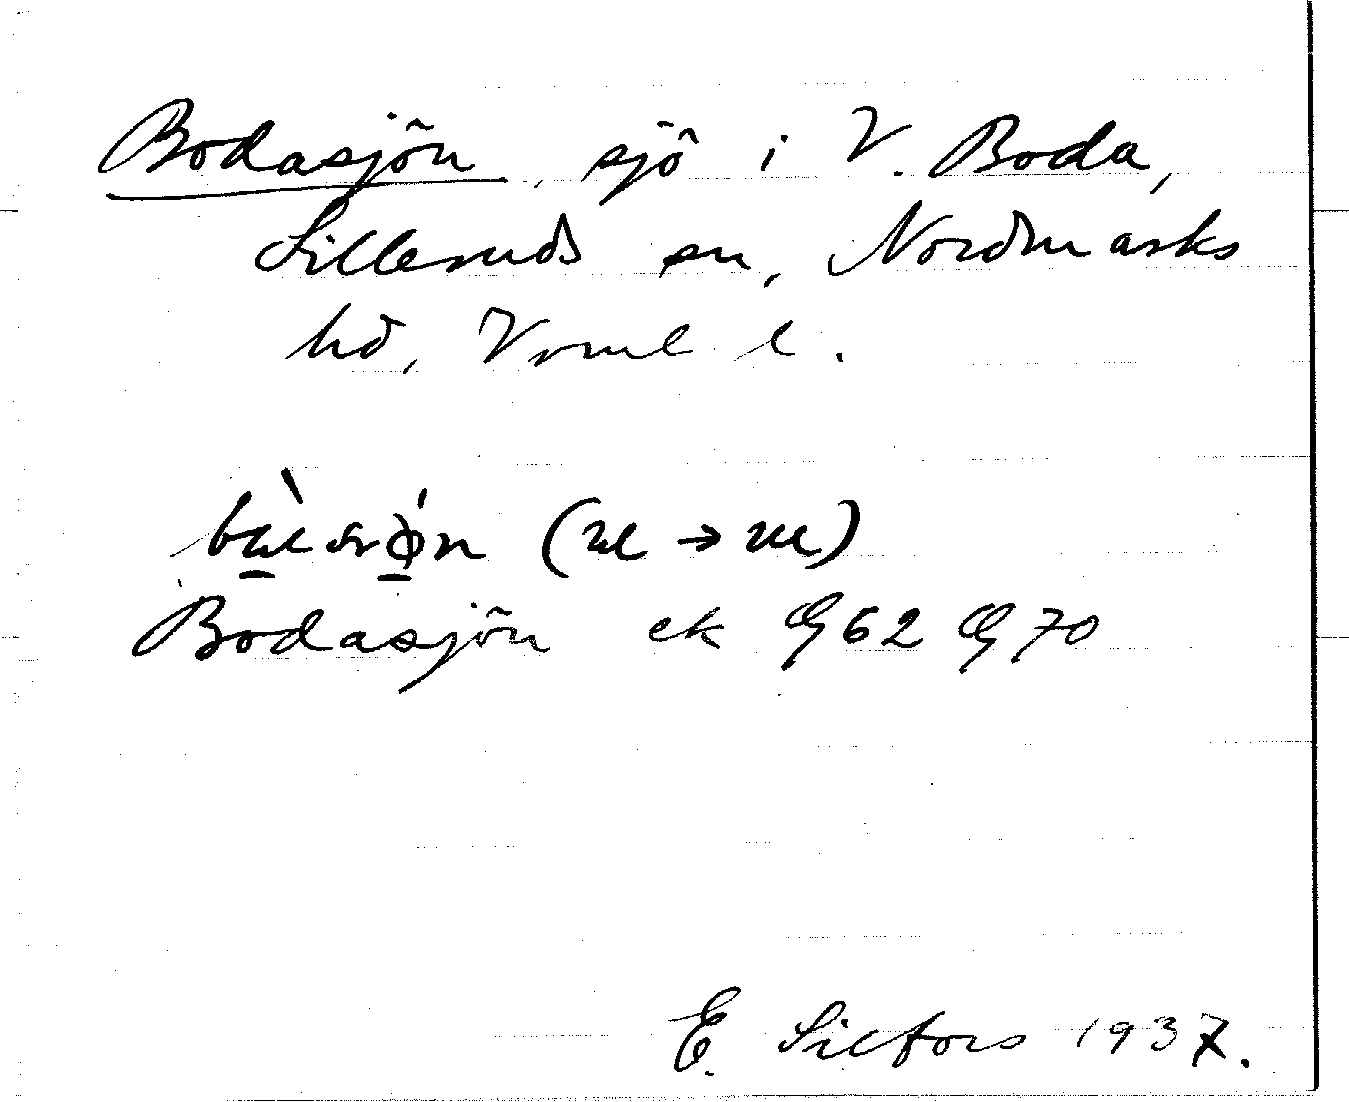 Bodasjön, sjö i V. Boda,
Silleruds sn, Nordmarks
hd, Vrml l.
Bodasjön ek G62 G70
E. Silfors 1937.